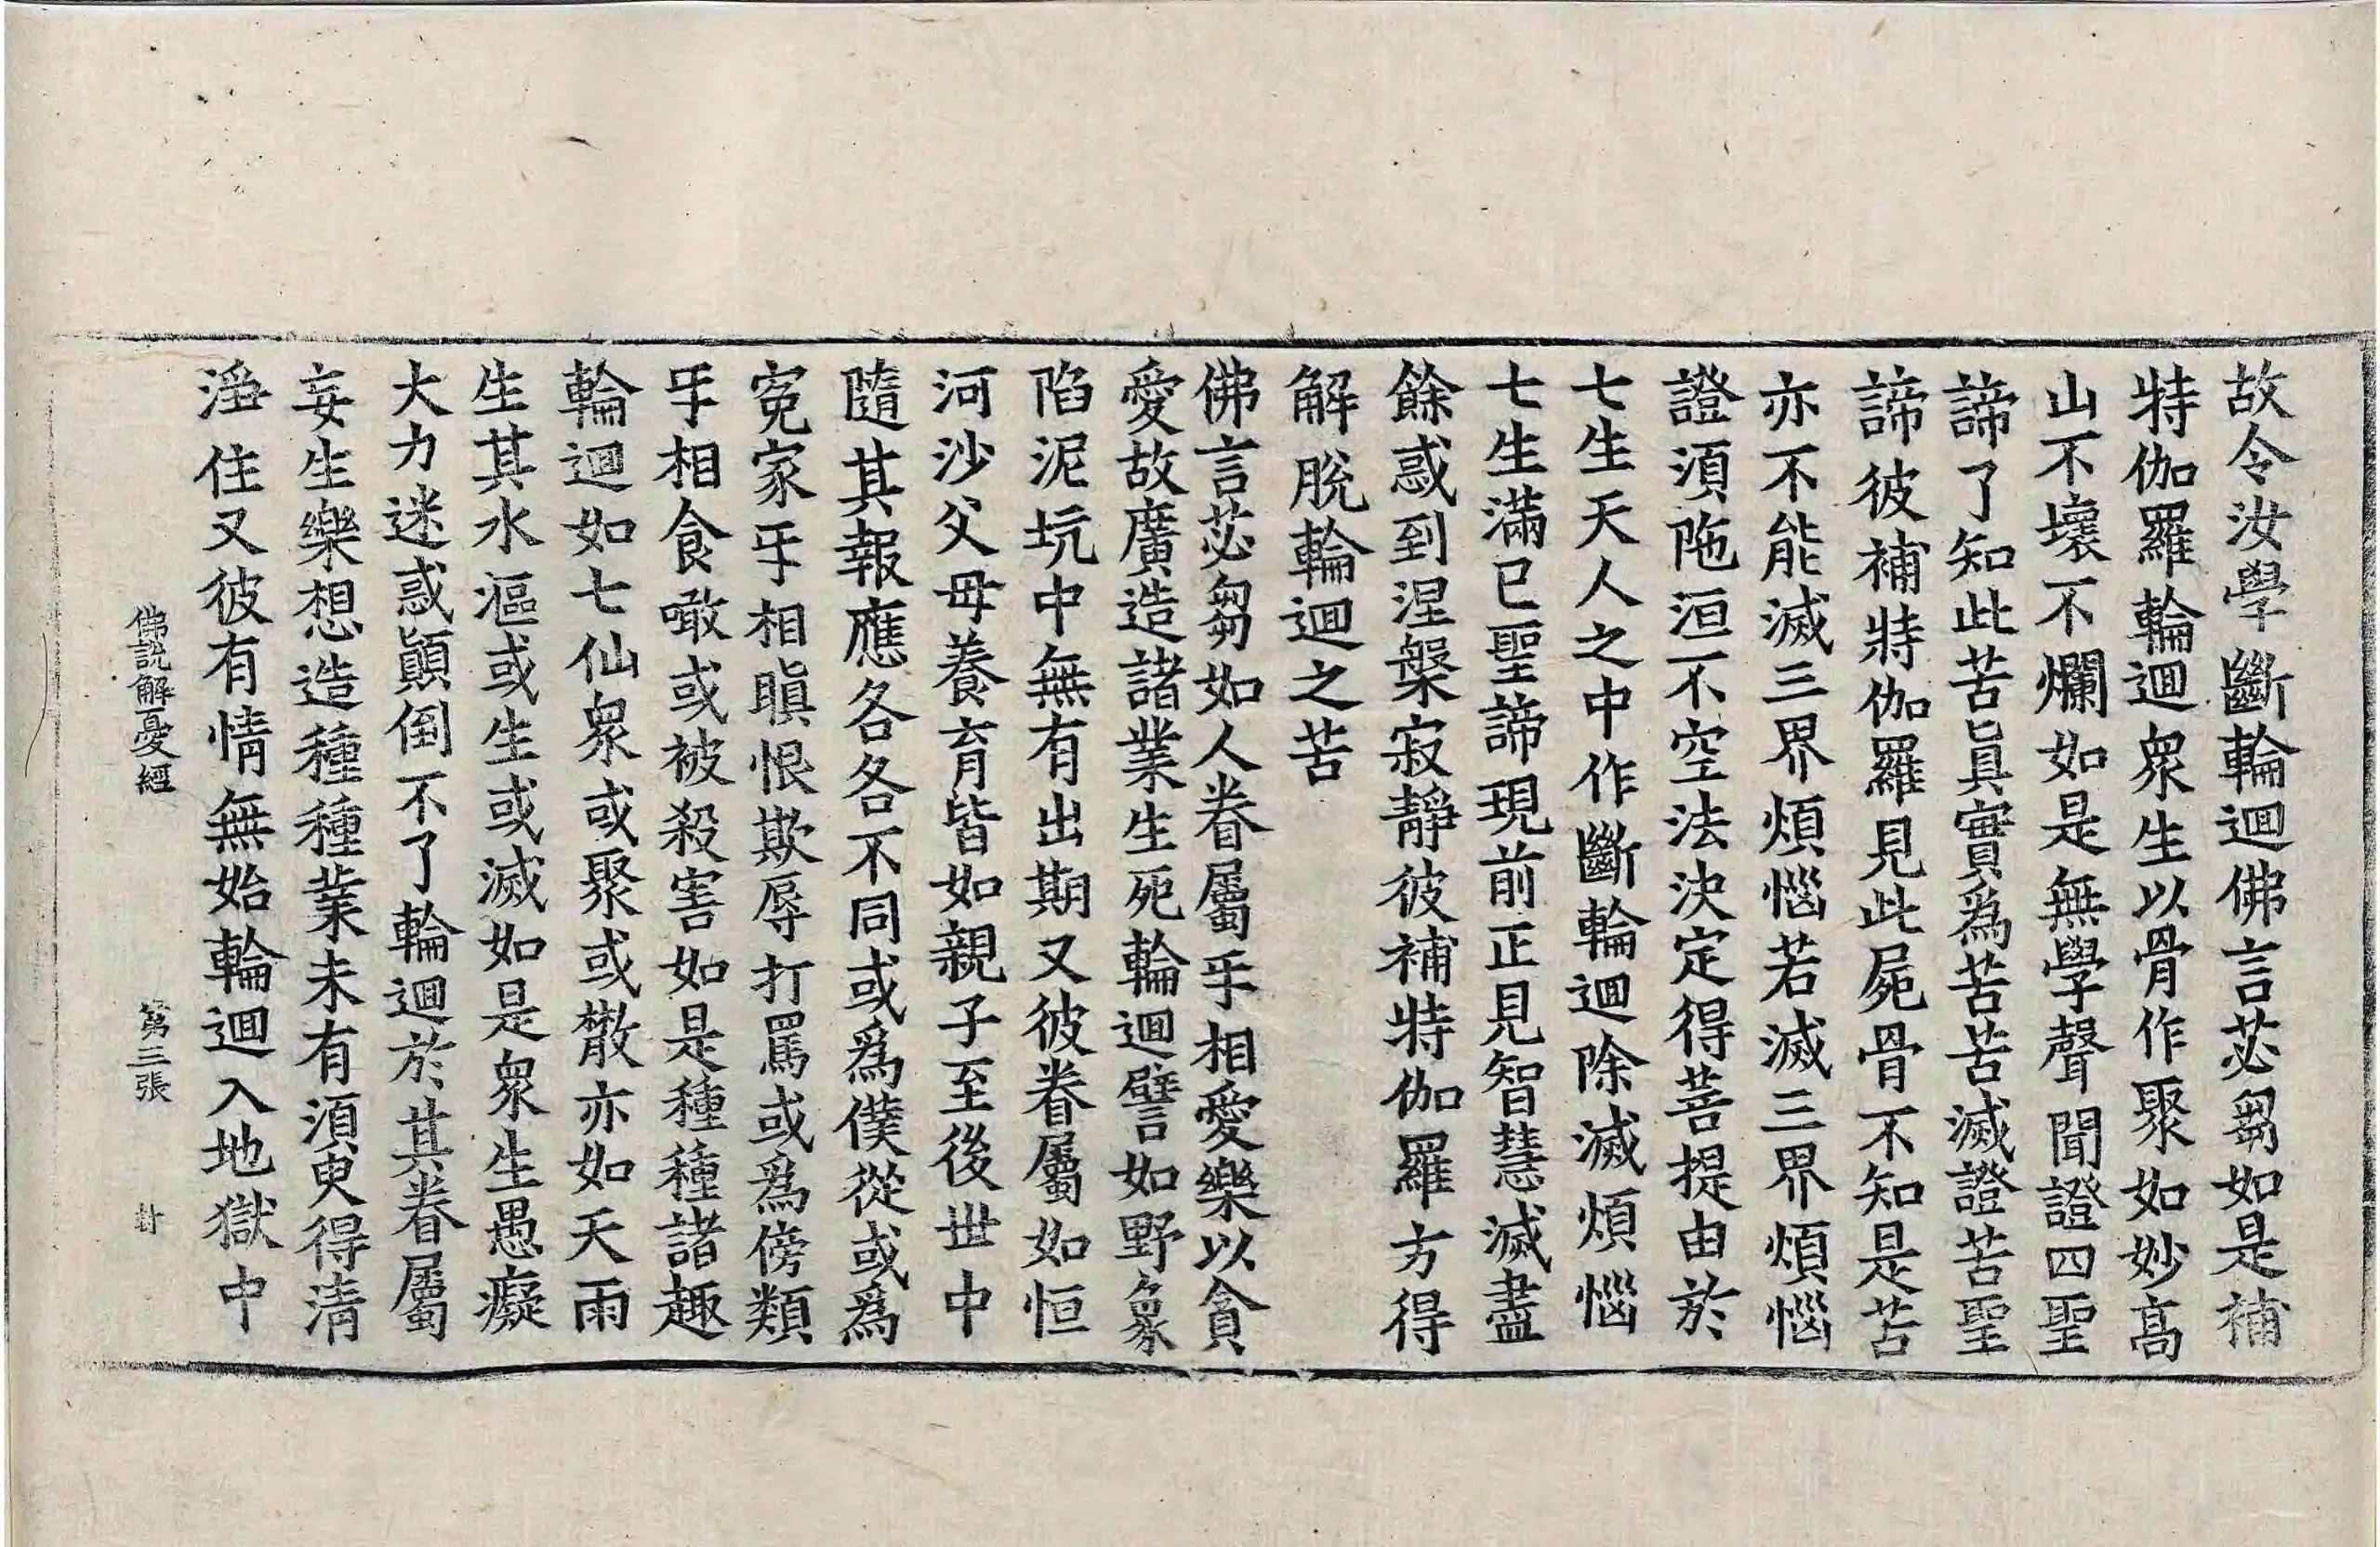 故令汝學斷輪迴佛言苾芻如是補
特伽羅輪迴衆生以骨作聚如妙高
山不壞不爛如是無學聲聞證四聖
諦了知此苦眞實爲苦苦滅證苦聖
諦彼補特伽羅見此屍骨不知是苦
亦不能滅三界煩惱若滅三界煩惱
證須陁洹不空法決定得菩提由於
七生天人之中作斷輪迴除滅煩惱
七生滿已聖諦現前正見智慧滅盡
餘惑到涅槃寂靜彼補特伽羅方得
解脫輪迴之苦
佛言苾芻如人眷屬㸦相愛樂以貪
愛故廣造諸業生死輪迴譬如野象
陷泥坑中無有出期又彼眷屬如恒
河沙父母養育皆如親子至後世中
隨其報應各各不同或爲僕從或爲
寃家㸦相瞋恨欺辱打罵或爲傍類
㸦相食噉或被殺害如是種種諸趣
輪迴如七仙衆或聚或散亦如天雨
生其水漚或生或滅如是衆生愚癡
大力迷惑顚倒不了輪迴於其眷屬
妄生樂想造種種業未有須臾得清
淨住又彼有情無始輪迴入地獄中
佛說解憂經 第三張